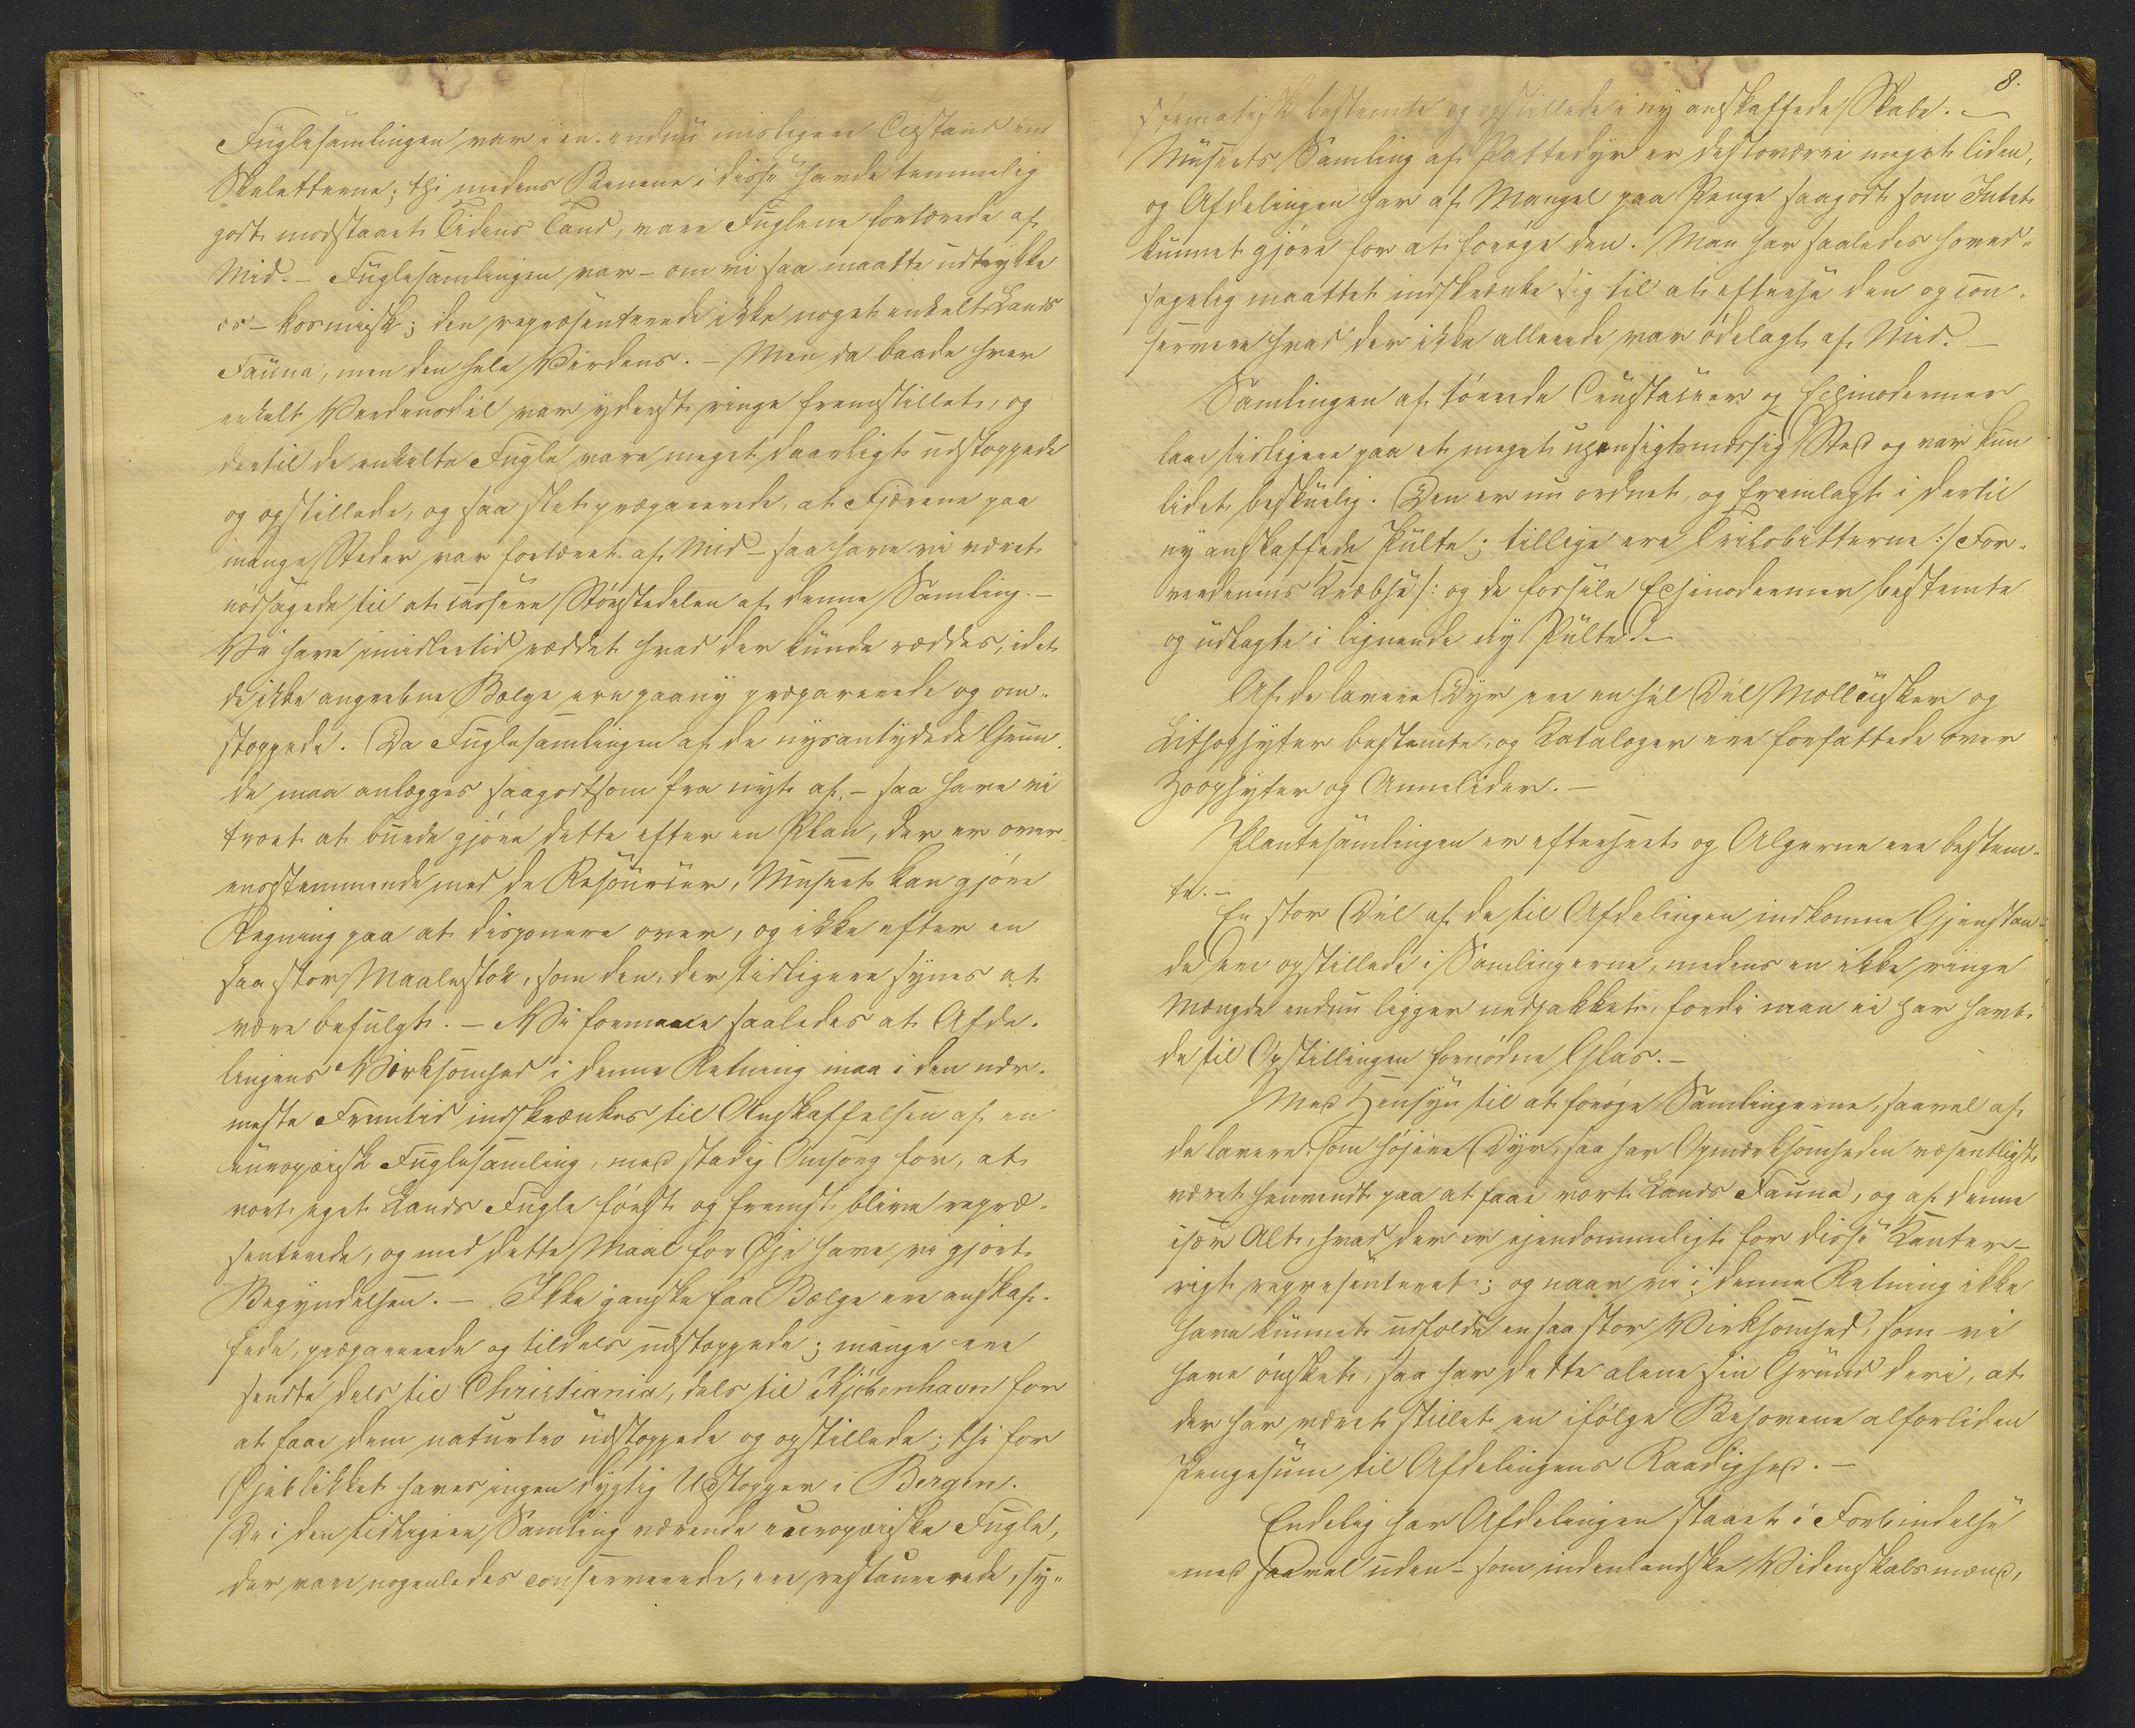 Fuglesamlingen var i en endnu misligere Tilstand end
Skeletterne; thi medens Benene i disse havde temmelig
godt modstaaet Tidens Tand, vare Fuglene fortærede af
Mid. – Fuglesamlingen var – om vi saa maatte udtrykke
os – kosmisk; den repræsenterede ikke noget enkelt Lands
Fauna, men den hele Verdens. – Men da baade hver
enkelt Verdensdel var yderst ringe fremstillet, og
dertil de enkelte Fugle vare meget daarligt udstoppede
og opstillede, og saa slet præparerede, at Fjærene paa
mange Steder var fortæret af Mid – saa have vi været
nødsagede til at cassere Størstedelen af denne Samling. –
Vi have imidlertid reddet hvad der kunde reddes, idet
de ikke angrebne Bælge ere paany præparerede og om-
stoppede. Da Fuglesamlingen af de nysantydede Grun-
de maa anlægges saagodtsom fra nyt af, – saa have vi
troet at burde gjøre dette efter en Plan, der er over-
ensstemmende med de Resourcer, Museet kan gjøre
Regning paa at disponere over, og ikke efter en
saa stor Maalestok, som den, der tidligere synes at
være befulgt. – Vi formene saaledes at Afde-
lingens Virksomhed i denne Retning maa i den nær-
meste Fremtid indskrænkes til Anskaffelsen af en
europæisk Fuglesamling, med stadig Omsorg for, at
vort eget Lands Fugle først og fremst blive repræ-
senterede, og med dette Maal for Øje have vi gjort
Begyndelsen. – Ikke ganske faa Bælge ere anskaf-
fede, præparerede og tildels udstoppede; mange ere
sendte dels til Christiania, dels til Kjøbenhavn for
at faae dem naturtro udstoppede og opstillede; thi for
Øjeblikket haves ingen dygtig Udstopper i Bergen.
De i den tidligere Samling værende europæiske Fugle,
der vare nogenledes conserverede, ere restaurerede, sy-
8.
stematisk bestemte og opstillede i ny anskaffede Skabe. –
Museets Samling af Pattedyr er desto værre meget liden,
og Afdelingen har af Mangel paa Penge saagodt som Intet
kunnet gjøre for at forøge den. Man har saaledes hoved-
sagelig maattet indskrænke sig til at efterse den og con-
servere hvad der ikke allerede var ødelagt af Mid. –
Samlingen af tørrede Crustaceer og Echinodermer
laae tidligere paa et meget uhensigtsmæssig Sted og var kun
lidet beskuelig. Den er nu ordnet, og fremlagt i dertil
ny anskaffede Pulte; tillige ere Trilobitterne :/ For-
verdenens Krebse /: og de fossile Echinodermer bestemte
og udlagte i lignende ny Pulte. –
Af de lavere Dyr ere en hel Del Mollusker og
Lithophyter bestemte, og Kataloger ere forfattede over
Zoophyter og Annelider. –
Plantesamlingen er efterseet og Algerne ere bestem-
te. –
En stor Del af de til Afdelingen indkomne Gjenstan-
de ere opstillede i Samlingerne, medens en ikke ringe
Mængde endnu ligger nedpakket, fordi man ei har havt
de til Opstillingen fornødne Glas. –
Med Hensyn til at forøge Samlingerne, saavel af
de lavere som højere Dyr, saa har Opmærksomheden væsentligst
været henvendt paa at faae vort Lands Fauna, og af denne
især Alt, hvad der er ejendommeligt for disse Kanter –
rigt repræsenteret; og naar vi i denne Retning ikke
have kunnet udfolde en saa stor Virksomhed, som vi
have ønsket, saa har dette alene sin Grund deri, at
der har været stillet en ifølge Behovene alforliden
Pengesum til Afdelingens Raadighed. –
Endelig har Afdelingen staaet i Forbindelse
med saavel uden- som indenlandske Videnskabsmænd,